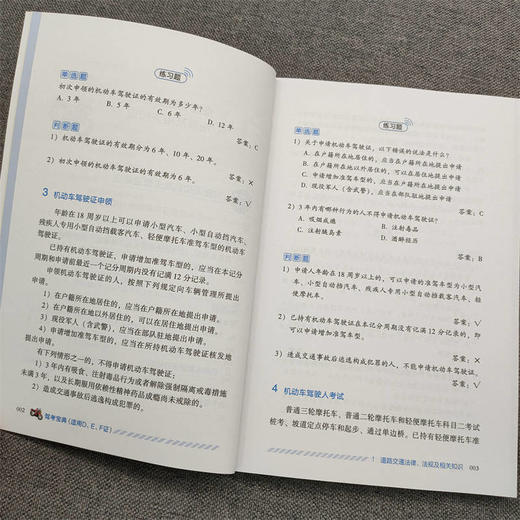 练习题
单选题
初次申领的机动车驾驶证的有效期为多少年?
A. 3 年 B. 5 年 C. 6 年 D. 12 年
答案:C
判断题
1)机动车驾驶证的有效期分为 6 年、10 年、20 年。
答案:×
2)初次申领的机动车驾驶证的有效期为 6 年。
答案:√
3 机动车驾驶证申领
年龄在 18 周岁以上可以申请小型汽车、小型自动挡汽车、
残疾人专用小型自动挡载客汽车、轻便摩托车准驾车型的机动车
驾驶证。
已持有机动车驾驶证,申请增加准驾车型的,应当在本记分
周期和申请前最近一个记分周期内没有记满 12 分记录。
申领机动车驾驶证的人,按照下列规定向车辆管理所提出
申请。
1)在户籍所在地居住的,应当在户籍所在地提出申请。
2)在户籍所在地以外居住的,可以在居住地提出申请。
3)现役军人(含武警),应当在部队驻地提出申请。
4)申请增加准驾车型的,应当在所持机动车驾驶证核发地
提出申请。
有下列情形之一的,不得申请机动车驾驶证:
1)3 年内有吸食、注射毒品行为或者解除强制隔离戒毒措施
未满 3 年,以及长期服用依赖性精神药品成瘾尚未戒除的。
2)造成交通事故后逃逸构成犯罪的。
002 驾考宝典(适用D、E、F证)
练习题
单选题
1)关于申请机动车驾驶证,以下错误的说法是什么?
A. 在户籍所在地居住的,应当在户籍所在地提出申请
B. 在户籍所在地以外居住的,可以在居住地提出申请
C. 申请增加准驾车型的,应当在户籍所在地提出申请
D. 现役军人(含武警),应当在部队驻地提出申请
答案:C
2)3 年内有哪种行为的人不得申请机动车驾驶证?
A. 吸烟成瘾 B. 注射毒品
C. 注射胰岛素 D. 酒醉经历
答案:B
判断题
1)申请人年龄在 18 周岁以上的,可以申请的准驾车型为小型汽
车、小型自动挡汽车、残疾人专用小型自动挡载客汽车、轻
便摩托车。
答案:√
2)已持有机动车驾驶证在本记分周期没有记满 12 分记录的,即
可以申请增加准驾车型。
答案:×
3)造成交通事故后逃逸构成犯罪的人,不能申请机动车驾驶证。
答案:√
4 机动车驾驶人考试
普通三轮摩托车、普通二轮摩托车和轻便摩托车科目二考试
桩考、坡道定点停车和起步、通过单边桥。已持有轻便摩托车准
1 道路交通法律、法规及相关知识 003